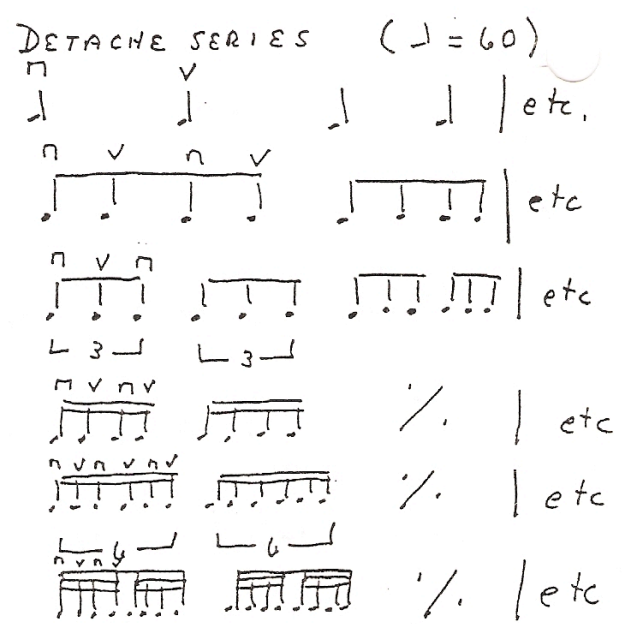 DETACHE SERIES (♩=60)
etc.
etc
etc
3 3
etc
etc
6 6
etc